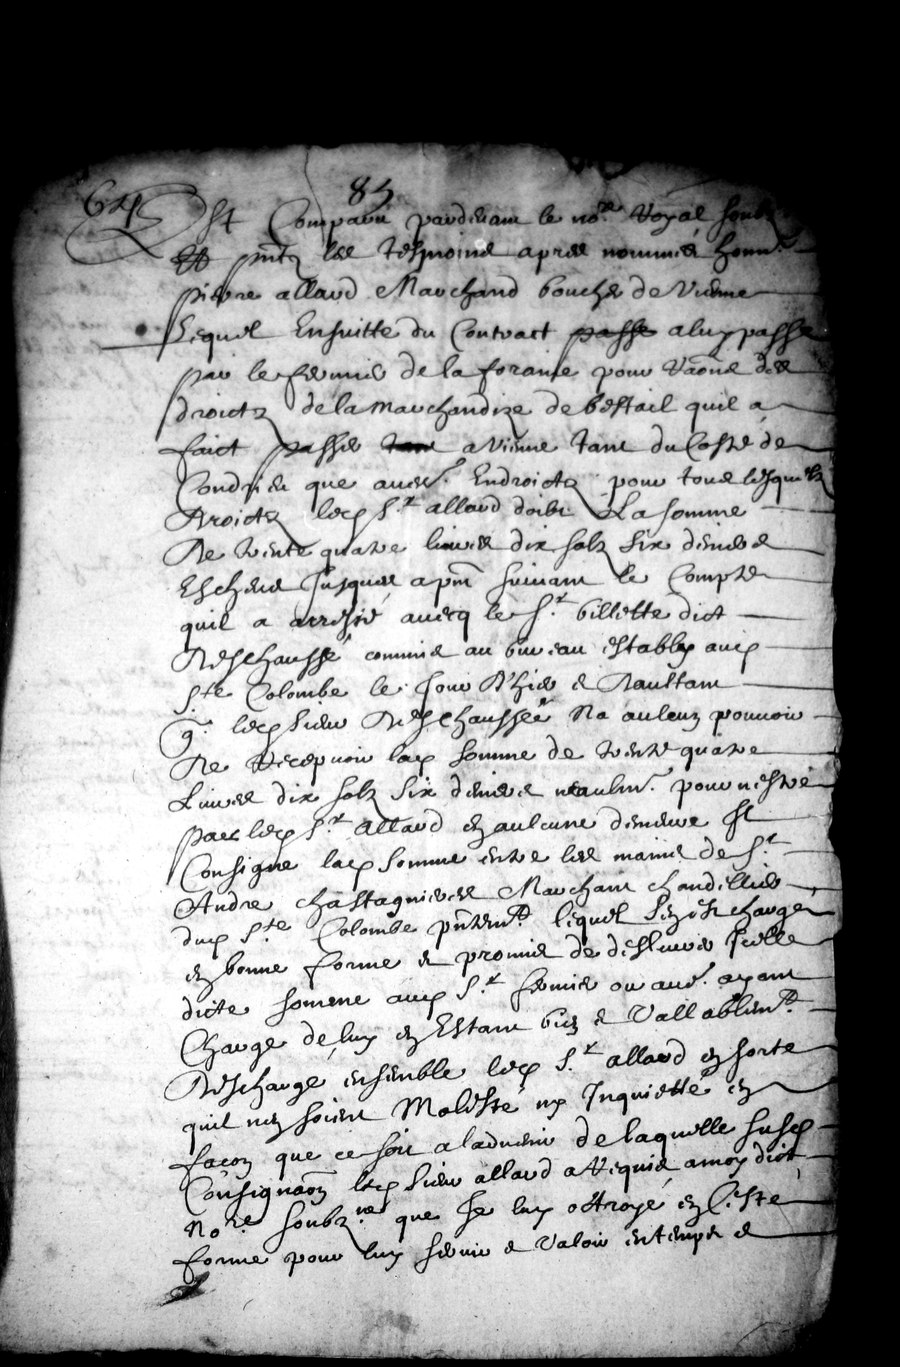 85
Exp
Est Comparu pardevant le no.re Royal soubz
Et p̄ntz les tesmoins apres nommes honn.
pierre allard Marchand boucher de Vienne
Lequel Ensuitte du Contract passe a luy passe
par le fermier de la foraine pour Raōn des
droictz de la marchandize de bestail quil a
faict passer tant a Vienne tant du Costé de
Condrieu que autr. Endroictz pour tous lesquelz
Droictz led S.r allard doibt La somme
De trente quatre livres dix solz six deniers
Escheus Jusques a p̄nt suivant le Compte
quil a arresté avecq le S.r billette dict
Deschaussé commis au bureau estably aud
S.te Colombe le Jour D'hier & Daultant
q. led sieur Deschaussé Na aulcun pouvoir
De Recepvoir lad somme de trente quatre
Livres dix solz six deniers neaulm. pour nestre
par led S.r allard en aulcune demeure Il
Consigne lad somme entre les mains de S.r
Andre chastagnieres Marchant chandellier
dud S.te Colombe p̄ntemt. lequel sen est chargé
en bonne forme & promis de deslivrer Icelle
dicte somme aud S.r fermier ou autr. ayant
Charge de luy en Estant bien & Vallablemt.
Deschargé ensemble led S.r allard en sorte
quil nen soient Molesté ny Inquietté en
facon que ce soit a ladvenir de laquelle susd
Consignaōn led sieur allard a Requis a moy dict
No.re soubz.ne que Je luy octroyé en Ceste
forme pour luy servir & Valoir en temps &